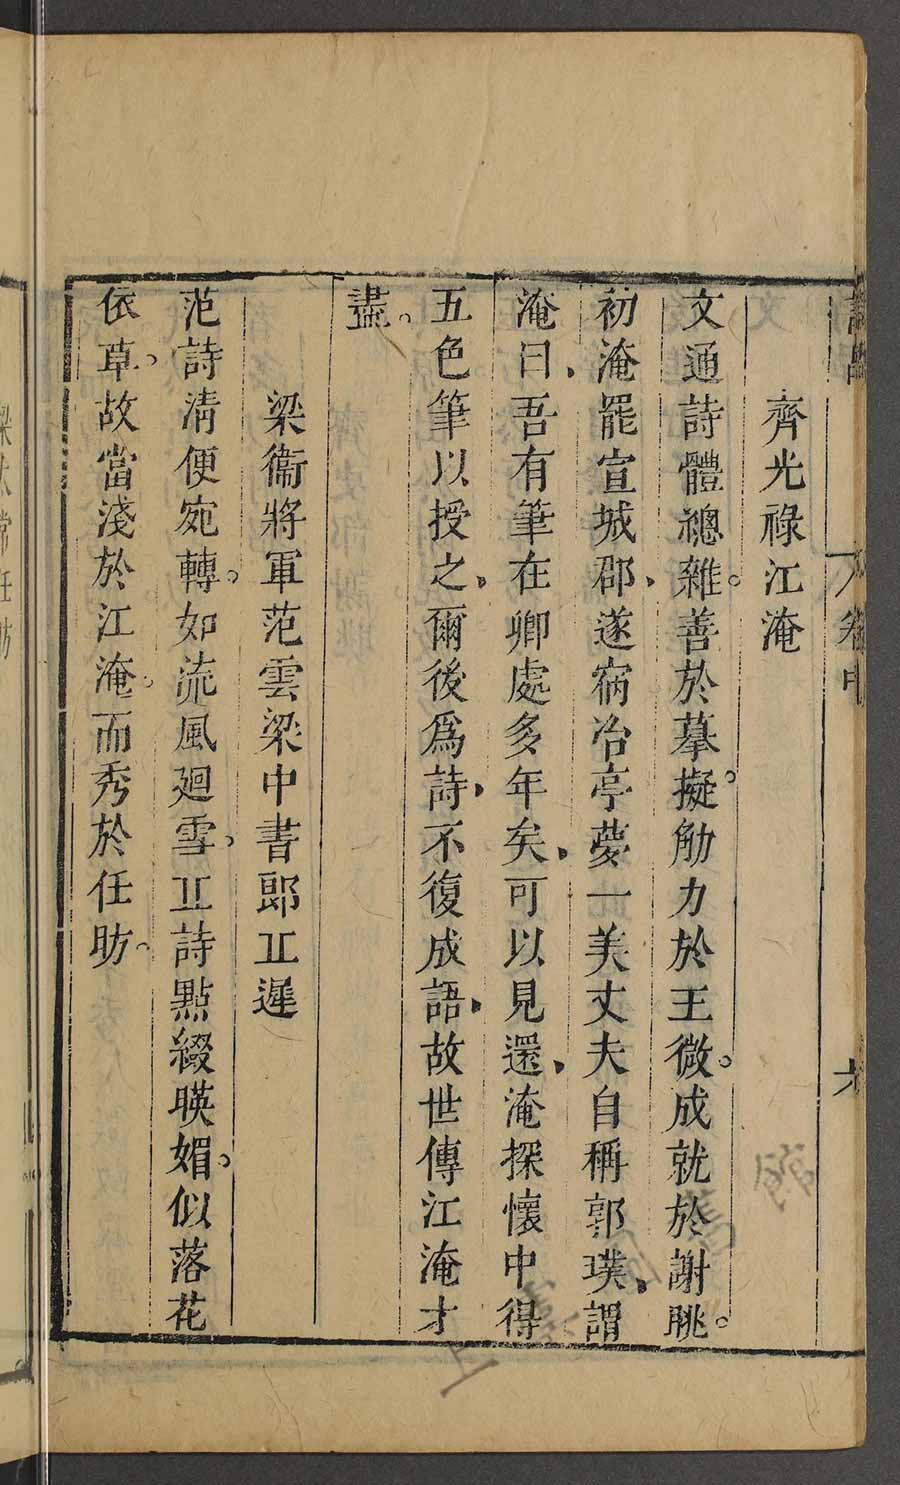 詩品
卷中
齊光祿江淹
文通詩體總雜。善於摹擬。觔力於王微。成就於謝眺。
初淹罷宣城郡、遂宿冶亭夢一美丈夫自稱郭璞、謂
淹曰、吾有筆在卿處多年矣、可以見還、淹探懷中得
五色筆以授之、爾後爲詩、不復成語、故世傳江淹才
盡。
梁衞將軍范雲梁中書郎丘遲
范詩淸便宛轉。如流風迴雪。丘詩點綴暎媚。似落花
依草。故當淺於江淹。而秀於任昉。